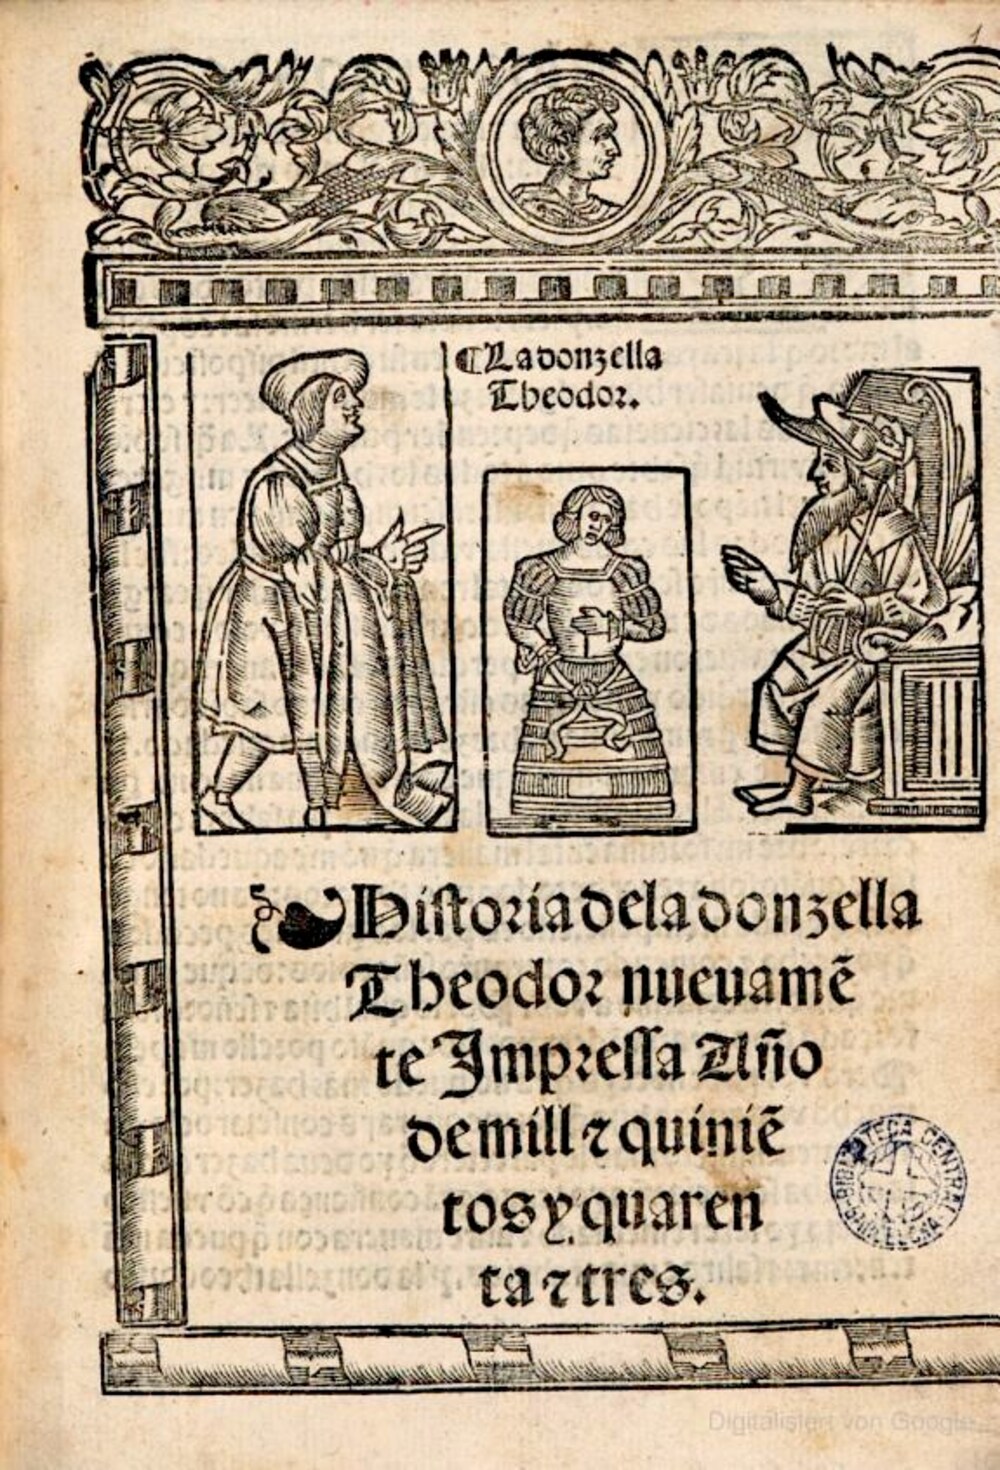 1
¶ La donzella
Theodor.
Historia dela donzella
Theodor nueuamẽ
te Impressa Año
de mill ⁊ quiniẽ
tos y quaren
ta ⁊ tres.
BIBLIOTECA CENTRAL
BARCELONA
Digitalisiert von Google